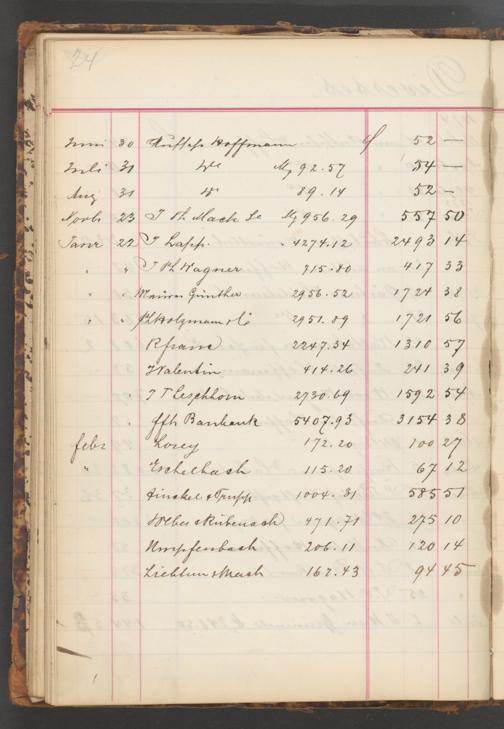 24
Juni 30 Hoffmann f 52 —
Juli 31 do Mk 92.57 54 —
Aug 31 do 89.14 52 —
Novb 23 J Ph Mack Mk 956.29 557 50
Janr 22 J Lapp " 4274.12 2493 14
" " J Ph Wagner 715.80 417 33
" " Günther 2956.52 1724 38
" " Ph Holzmann & Co 2951.89 1721 56
2247.34 1310 57
Valentin 414.26 241 39
" J T Leschhorn 2730.69 1592 54
" ffth Bankank 5407.93 3154 38
febr Lorey 172.20 100 27
" Eschelbach 115.20 67 12
& Trupp 1004.31 585 51
Weber & Rübenach 471.71 275 10
Umpfenbach 206.11 120 14
162.43 94 45